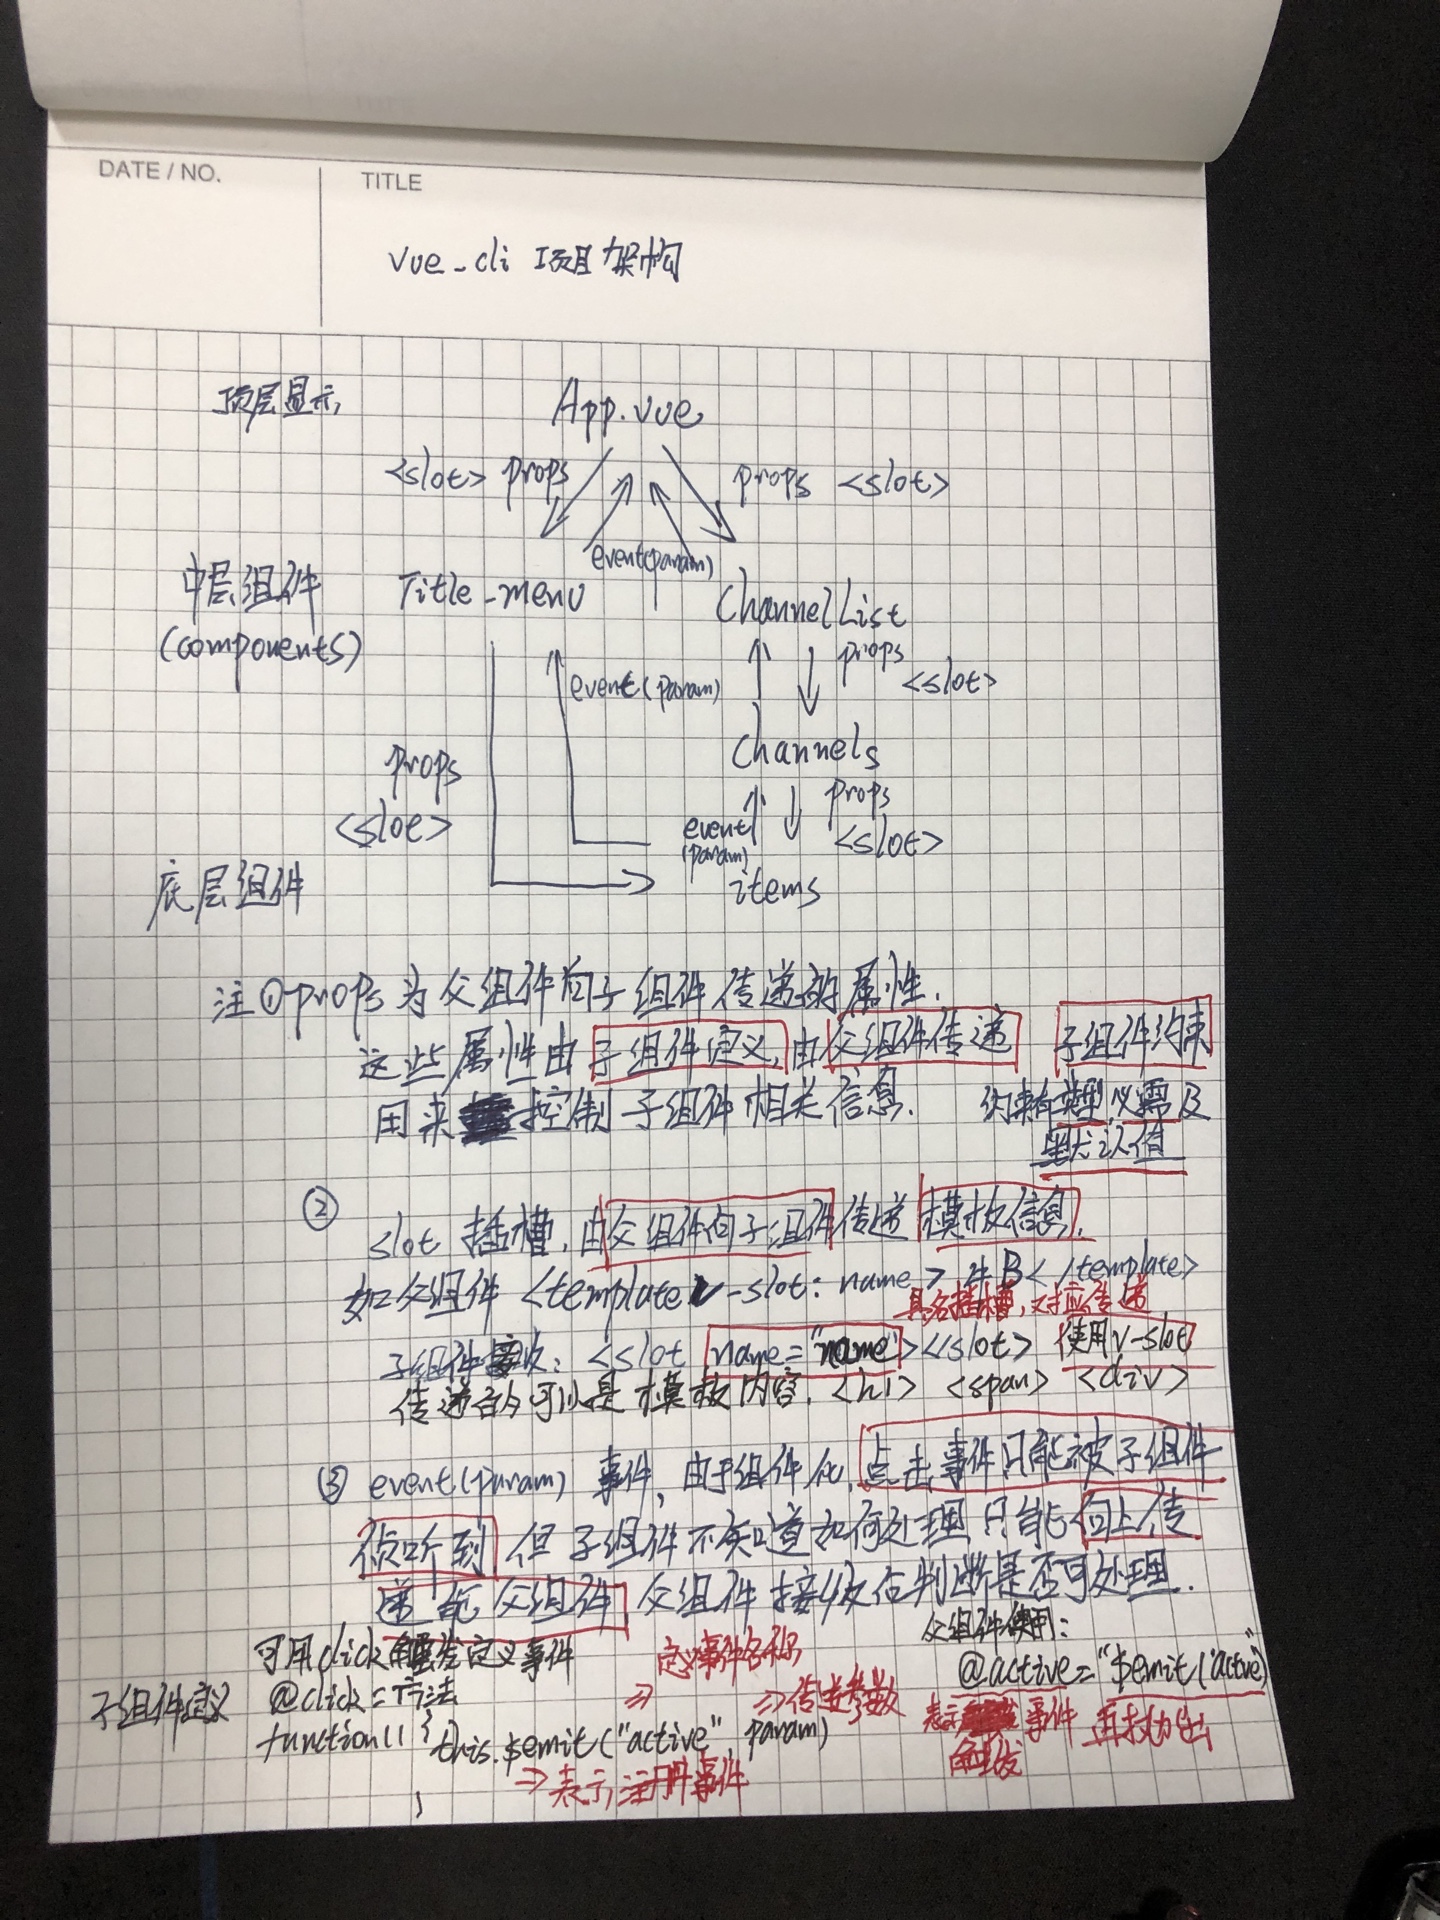 DATE / NO.
TITLE
vue_cli 项目架构
顶层显示
App.vue
<slot> props
props <slot>
event(param)
中层组件
(components)
Title_menu
ChannelList
event(param)
props
<slot>
Channels
props
<slot>
props
<slot>
event
(param)
底层组件
items
注①props 为父组件向子组件传递的属性.
这些属性由子组件定义,由父组件传递 子组件约束
用来控制子组件相关信息. 约束有类型 必需 及
默认值
②
slot 插槽,由父组件向子组件传递 模板信息.
如父组件 <template v-slot: name> B </template>
具名插槽,对应传递
子组件接收: <slot name="name"></slot> 使用 v-slot
传递的可以是模板内容. <h1> <span> <div>
③ event(param) 事件,由于组件化,点击事件只能被子组件
侦听到 但子组件不知道如何处理 只能向上传
递给父组件 父组件接收后判断是否可处理.
可用click触发定义事件
定义事件名称
父组件使用:
子组件定义
@click=方法
⇒
⇒传递参数
@active="$emit('active')"
function() { this.$emit("active", param)
表示触发事件 再抛出
⇒表示注册事件
}